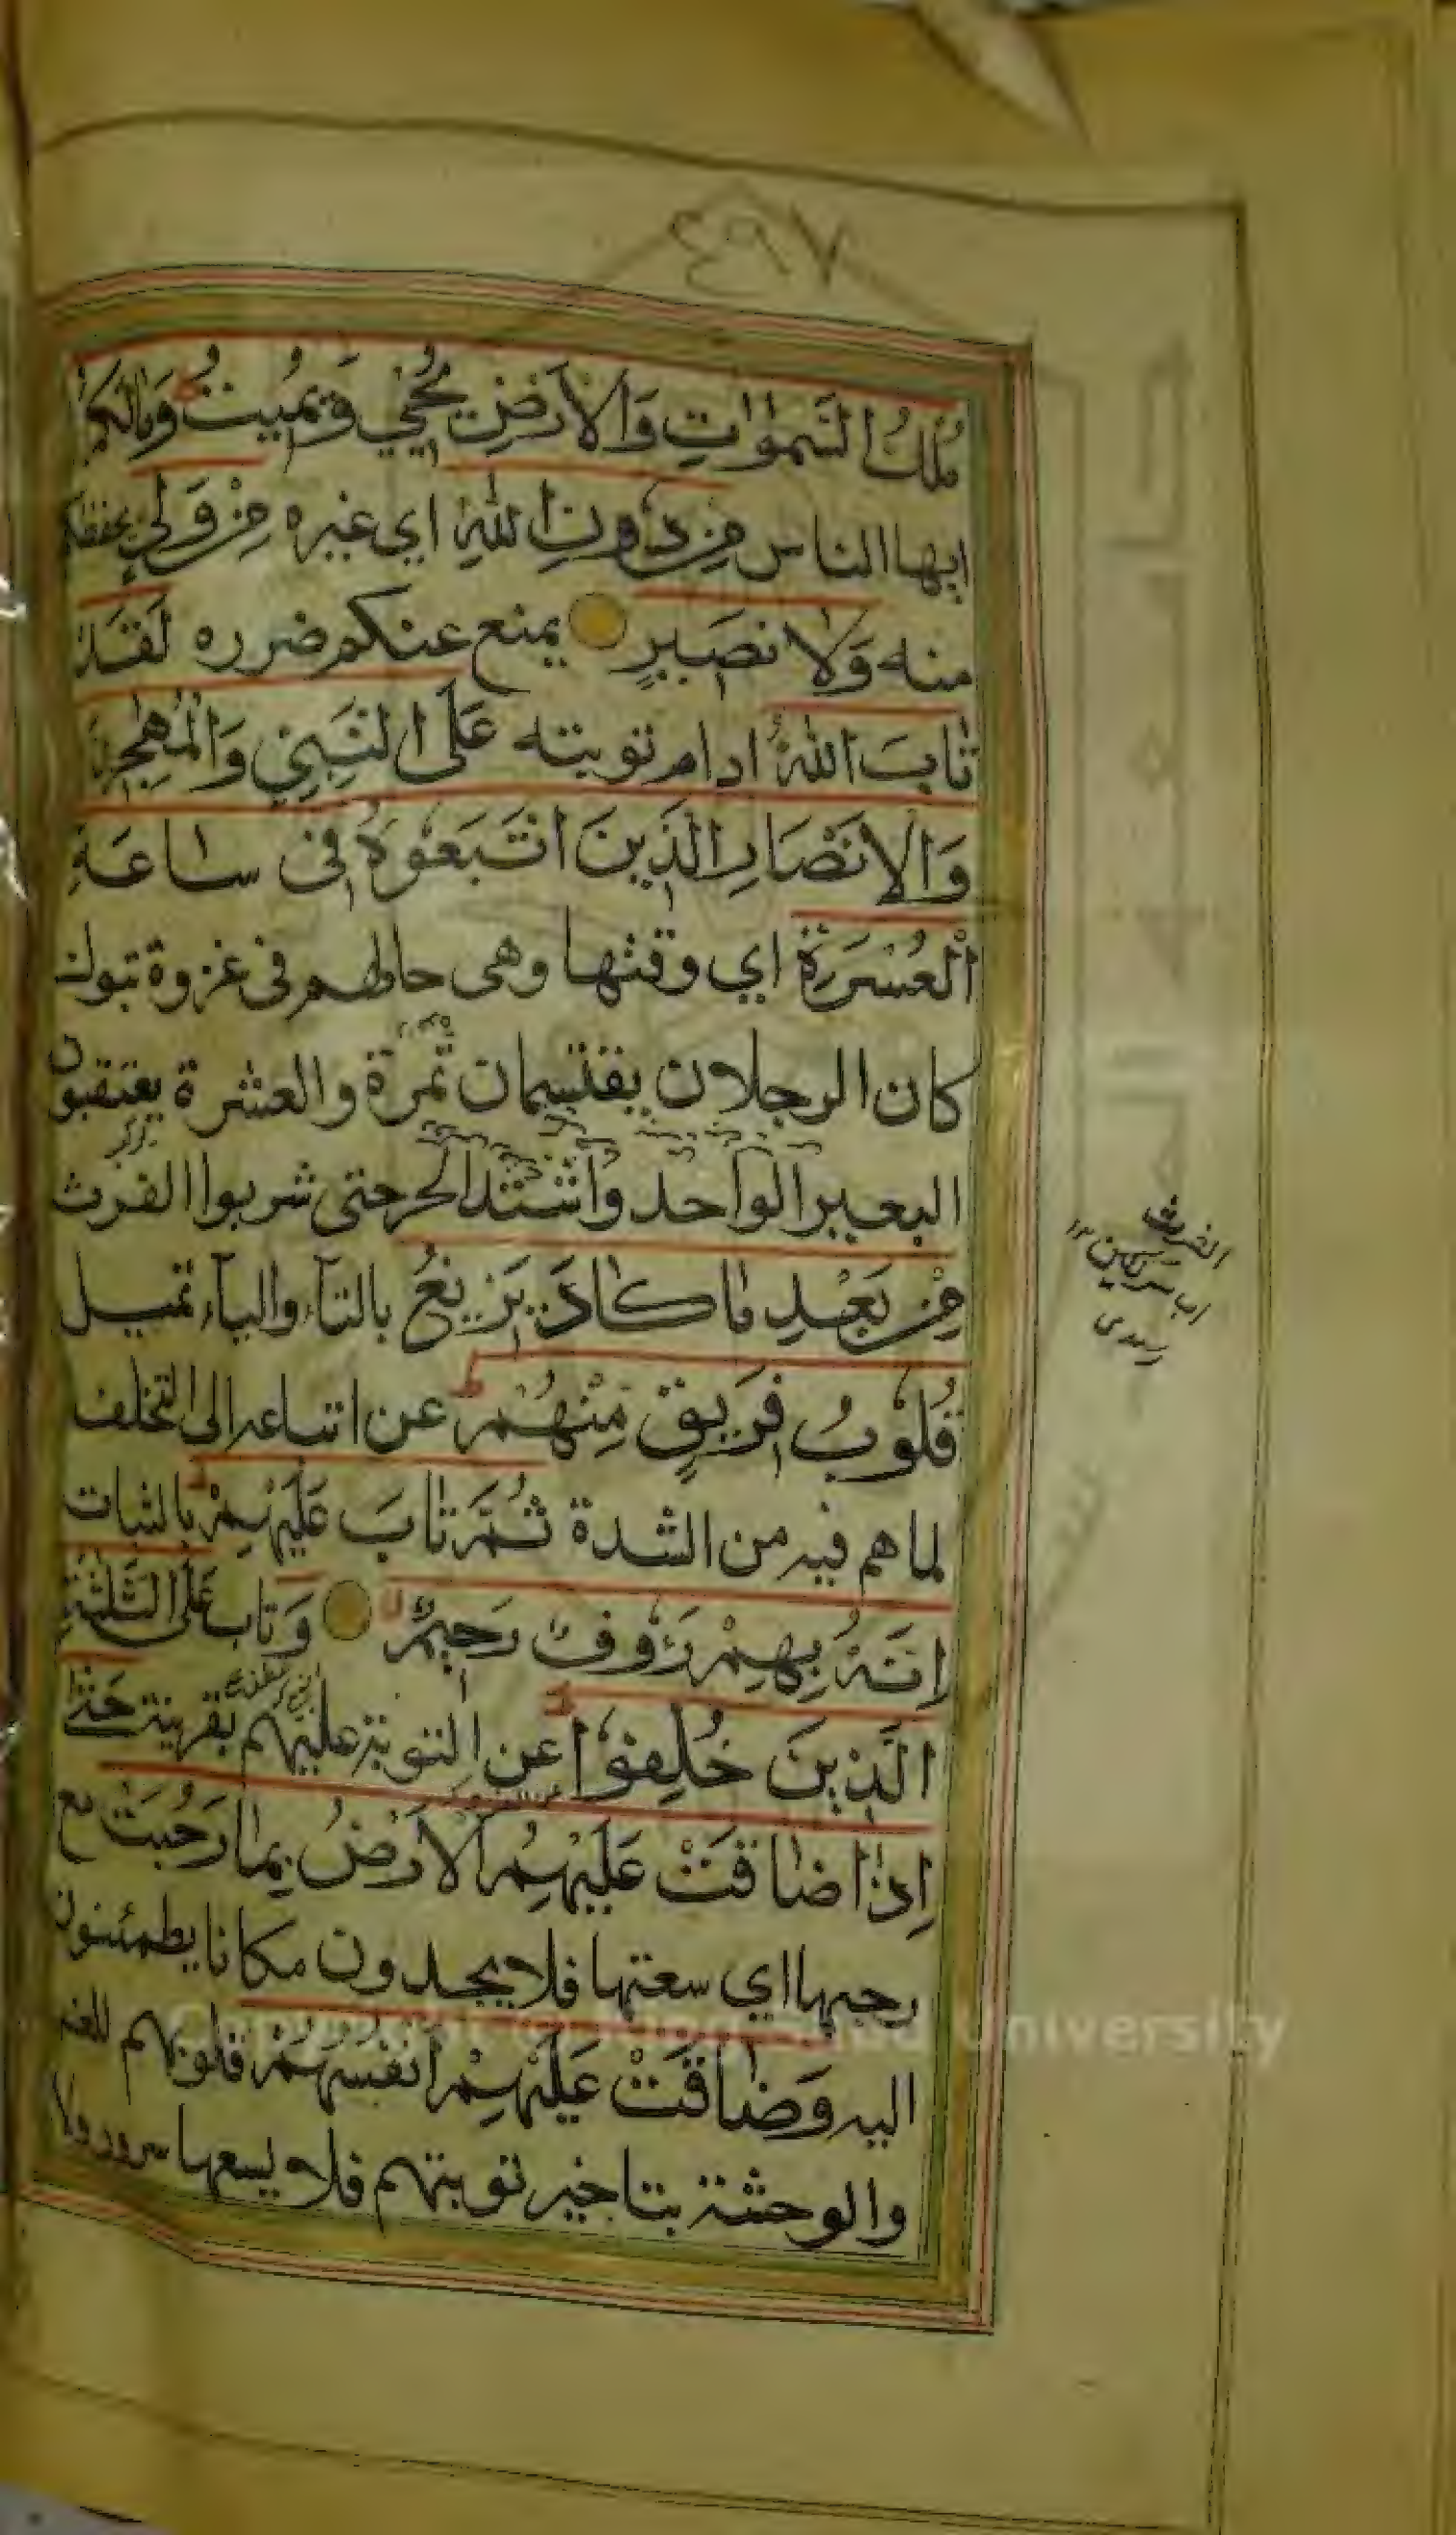 ٤٩٧
مُلْكُ السَّمٰوٰاتِ وَالْاَرْضِ يُحْيِي وَيُمِيتُ وَمٰالَكُمْ
ايها الناس مِنْ دُونِ اللّٰهِ اي غيره مِنْ وَلِيٍّ يحفظكم
منه وَلٰا نَصِيرٍ يمنع عنكم ضرره لَقَدْ
تٰابَ اللّٰهُ ادام توبته عَلَى النَّبِيِّ وَالْمُهٰجِرِينَ
وَالْاَنْصَارِ الَّذِينَ اتَّبَعُوهُ فِي سٰاعَةِ
الْعُسْرَةِ اي وقتها وهى حالهم فى غزوة تبوك
كان الرجلان يقتسمان تمرة والعشرة يعتقبون
البعير الواحد واشتد الحر حتى شربوا الفرث
مِنْ بَعْدِ مٰا كٰادَ يَزِيغُ بالتآء واليآء تميل
قُلُوبُ فَرِيقٍ مِنْهُمْ عن اتباعه الى التخلف
لما هم فيه من الشدة ثُمَّ تٰابَ عَلَيْهِمْ بالثبات
اِنَّهُ بِهِمْ رَؤُوفٌ رَحِيمٌ وَ تاب عَلَى الثَّلٰثَةِ
الَّذِينَ خُلِّفُوا عن التوبة عليهم بقرينة حَتّٰى
اِذٰا ضٰاقَتْ عَلَيْهِمُ الْاَرْضُ بِمٰا رَحُبَتْ مع
رحبها اي سعتها فلا يجدون مكانا يطمئنون
اليه وَضٰاقَتْ عَلَيْهِمْ اَنْفُسُهُمْ قلوبهم للغم
والوحشة بتاخير توبتهم فلا يسعها سرور ولا
الفرث
سركين ١٢